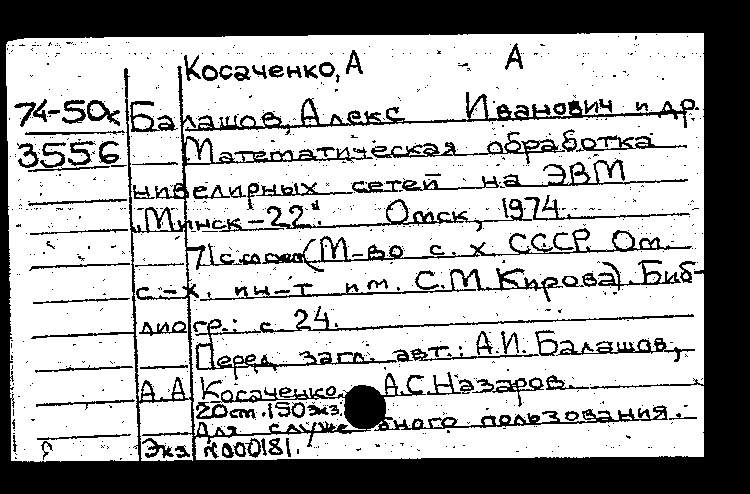 Косаченко, А А
74-50к Балашов, Алекс Иванович и др.
3556 Математическая обработка
нивелирных сетей на ЭВМ
„Минск-22". Омск, 1974.
71 с. (М-во с. х СССР. Ом.
с.-х. ин-т им. С.М. Кирова). Биб-
лиогр.: с. 24.
Перед загл. авт.: А.И. Балашов,
А.А Косаченко, А.С. Назаров.
20 ст. 150 экз.
Для служебного пользования.
Экз N000181.